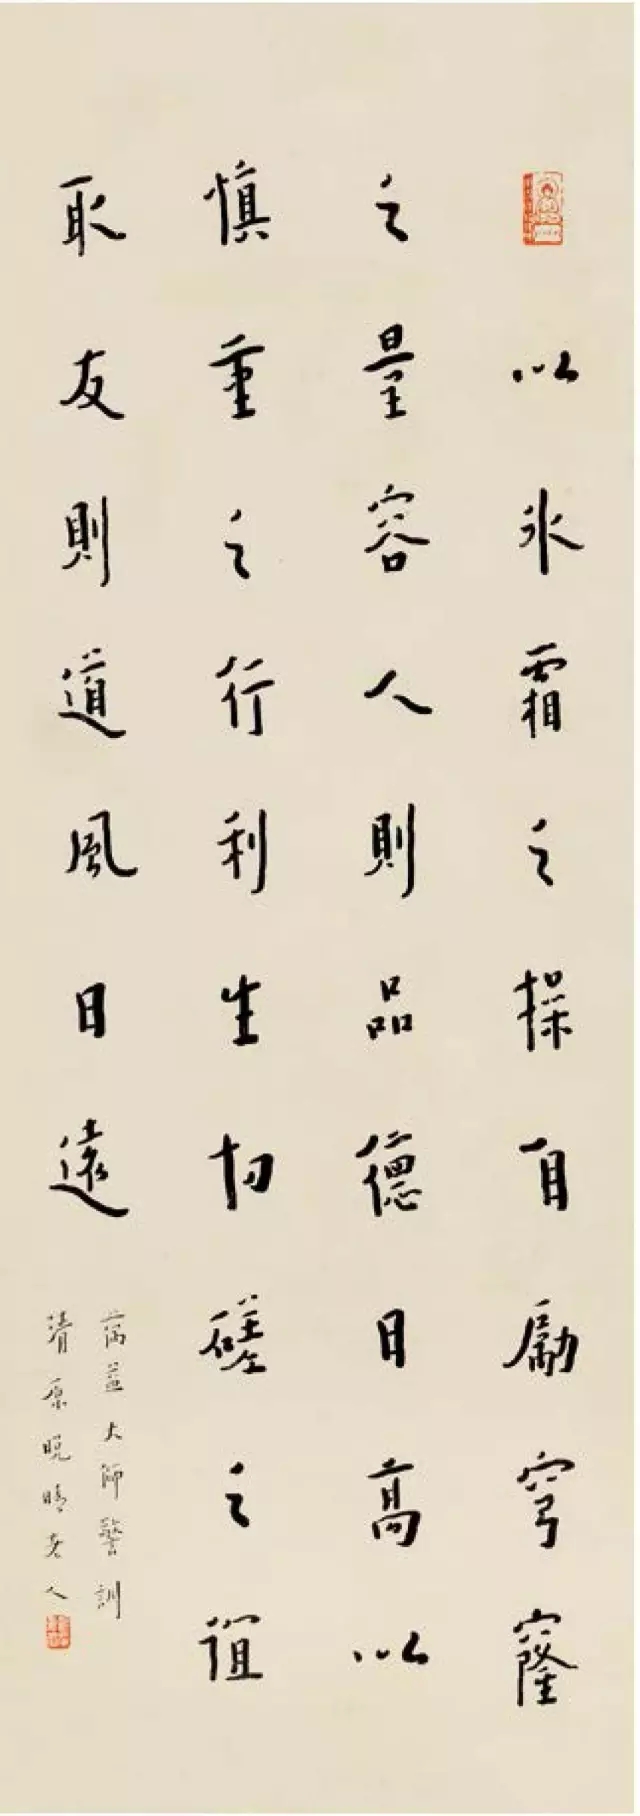 以冰霜之操自勵穹窿
之量容人則品德日高以
慎重之行利生切磋之誼
取友則道風日遠
蕅益大師警訓
清原晚晴老人